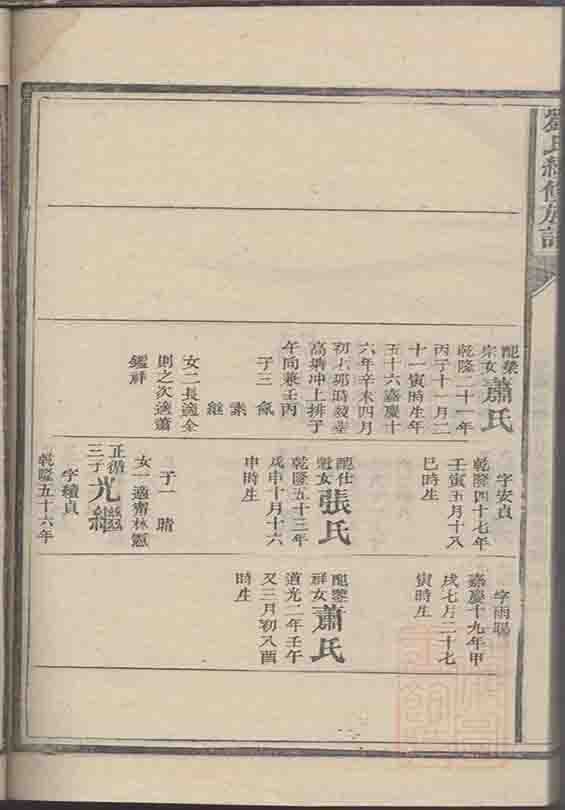 劉氏續修族譜
配榮
宗女
蕭氏
乾隆二十一年
丙子十一月二
十一寅時生年
五十六嘉慶十
六年辛未四月
高塘冲上排子
午向兼壬丙
子三 氣
素
繼
女二長適全
則之次適蕭
鑑祥
字安貞
乾隆四十七年
壬寅五月十八
巳時生
配仕
女
張氏
乾隆五十三年
戊申十月十六
申時生
子一 晴
女一適齊林憲
正循
三子
光繼
字績貞
乾隆五十六年
字雨暘
嘉慶十九年甲
戌七月二十七
寅時生
配鑒
祥女
蕭氏
道光二年壬午
又三月初八酉
時生